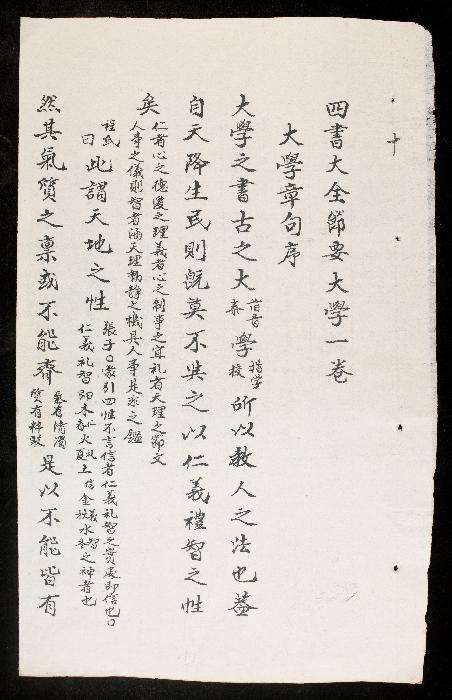 十
四書大全節要大學一卷
大學章句序
大學之書古之大舊音泰學揚學校所以教人之法也蓋
自天降生民則旣莫不與之以仁義禮智之性
矣仁者心之德愛之理義者心之制事之宜礼者天理之節文
人事之儀則智者涵天理動静之機具人事是非之鑑
程氏曰此謂天地之性張子曰蒙引四性不言信者仁義礼智之實處即信也
仁義礼智即木仁春火礼夏土信金義秋水智冬之神者也
然其氣質之禀或不能齊氣有清濁質有粹駁是以不能皆有